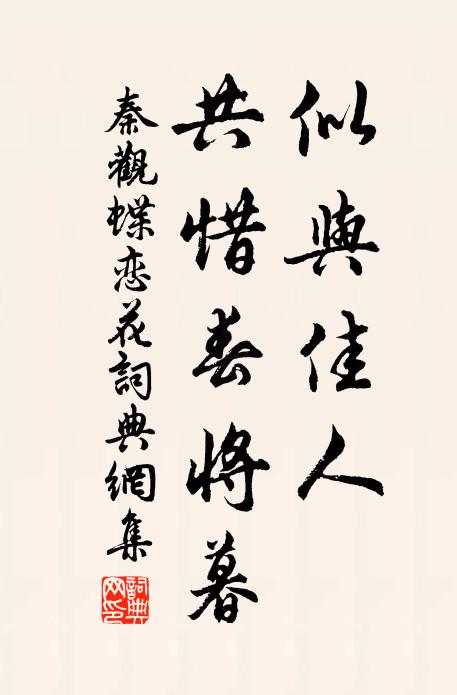 似與佳人
共惜春將暮
秦觀蝶恋花詞典網集
詞典网印